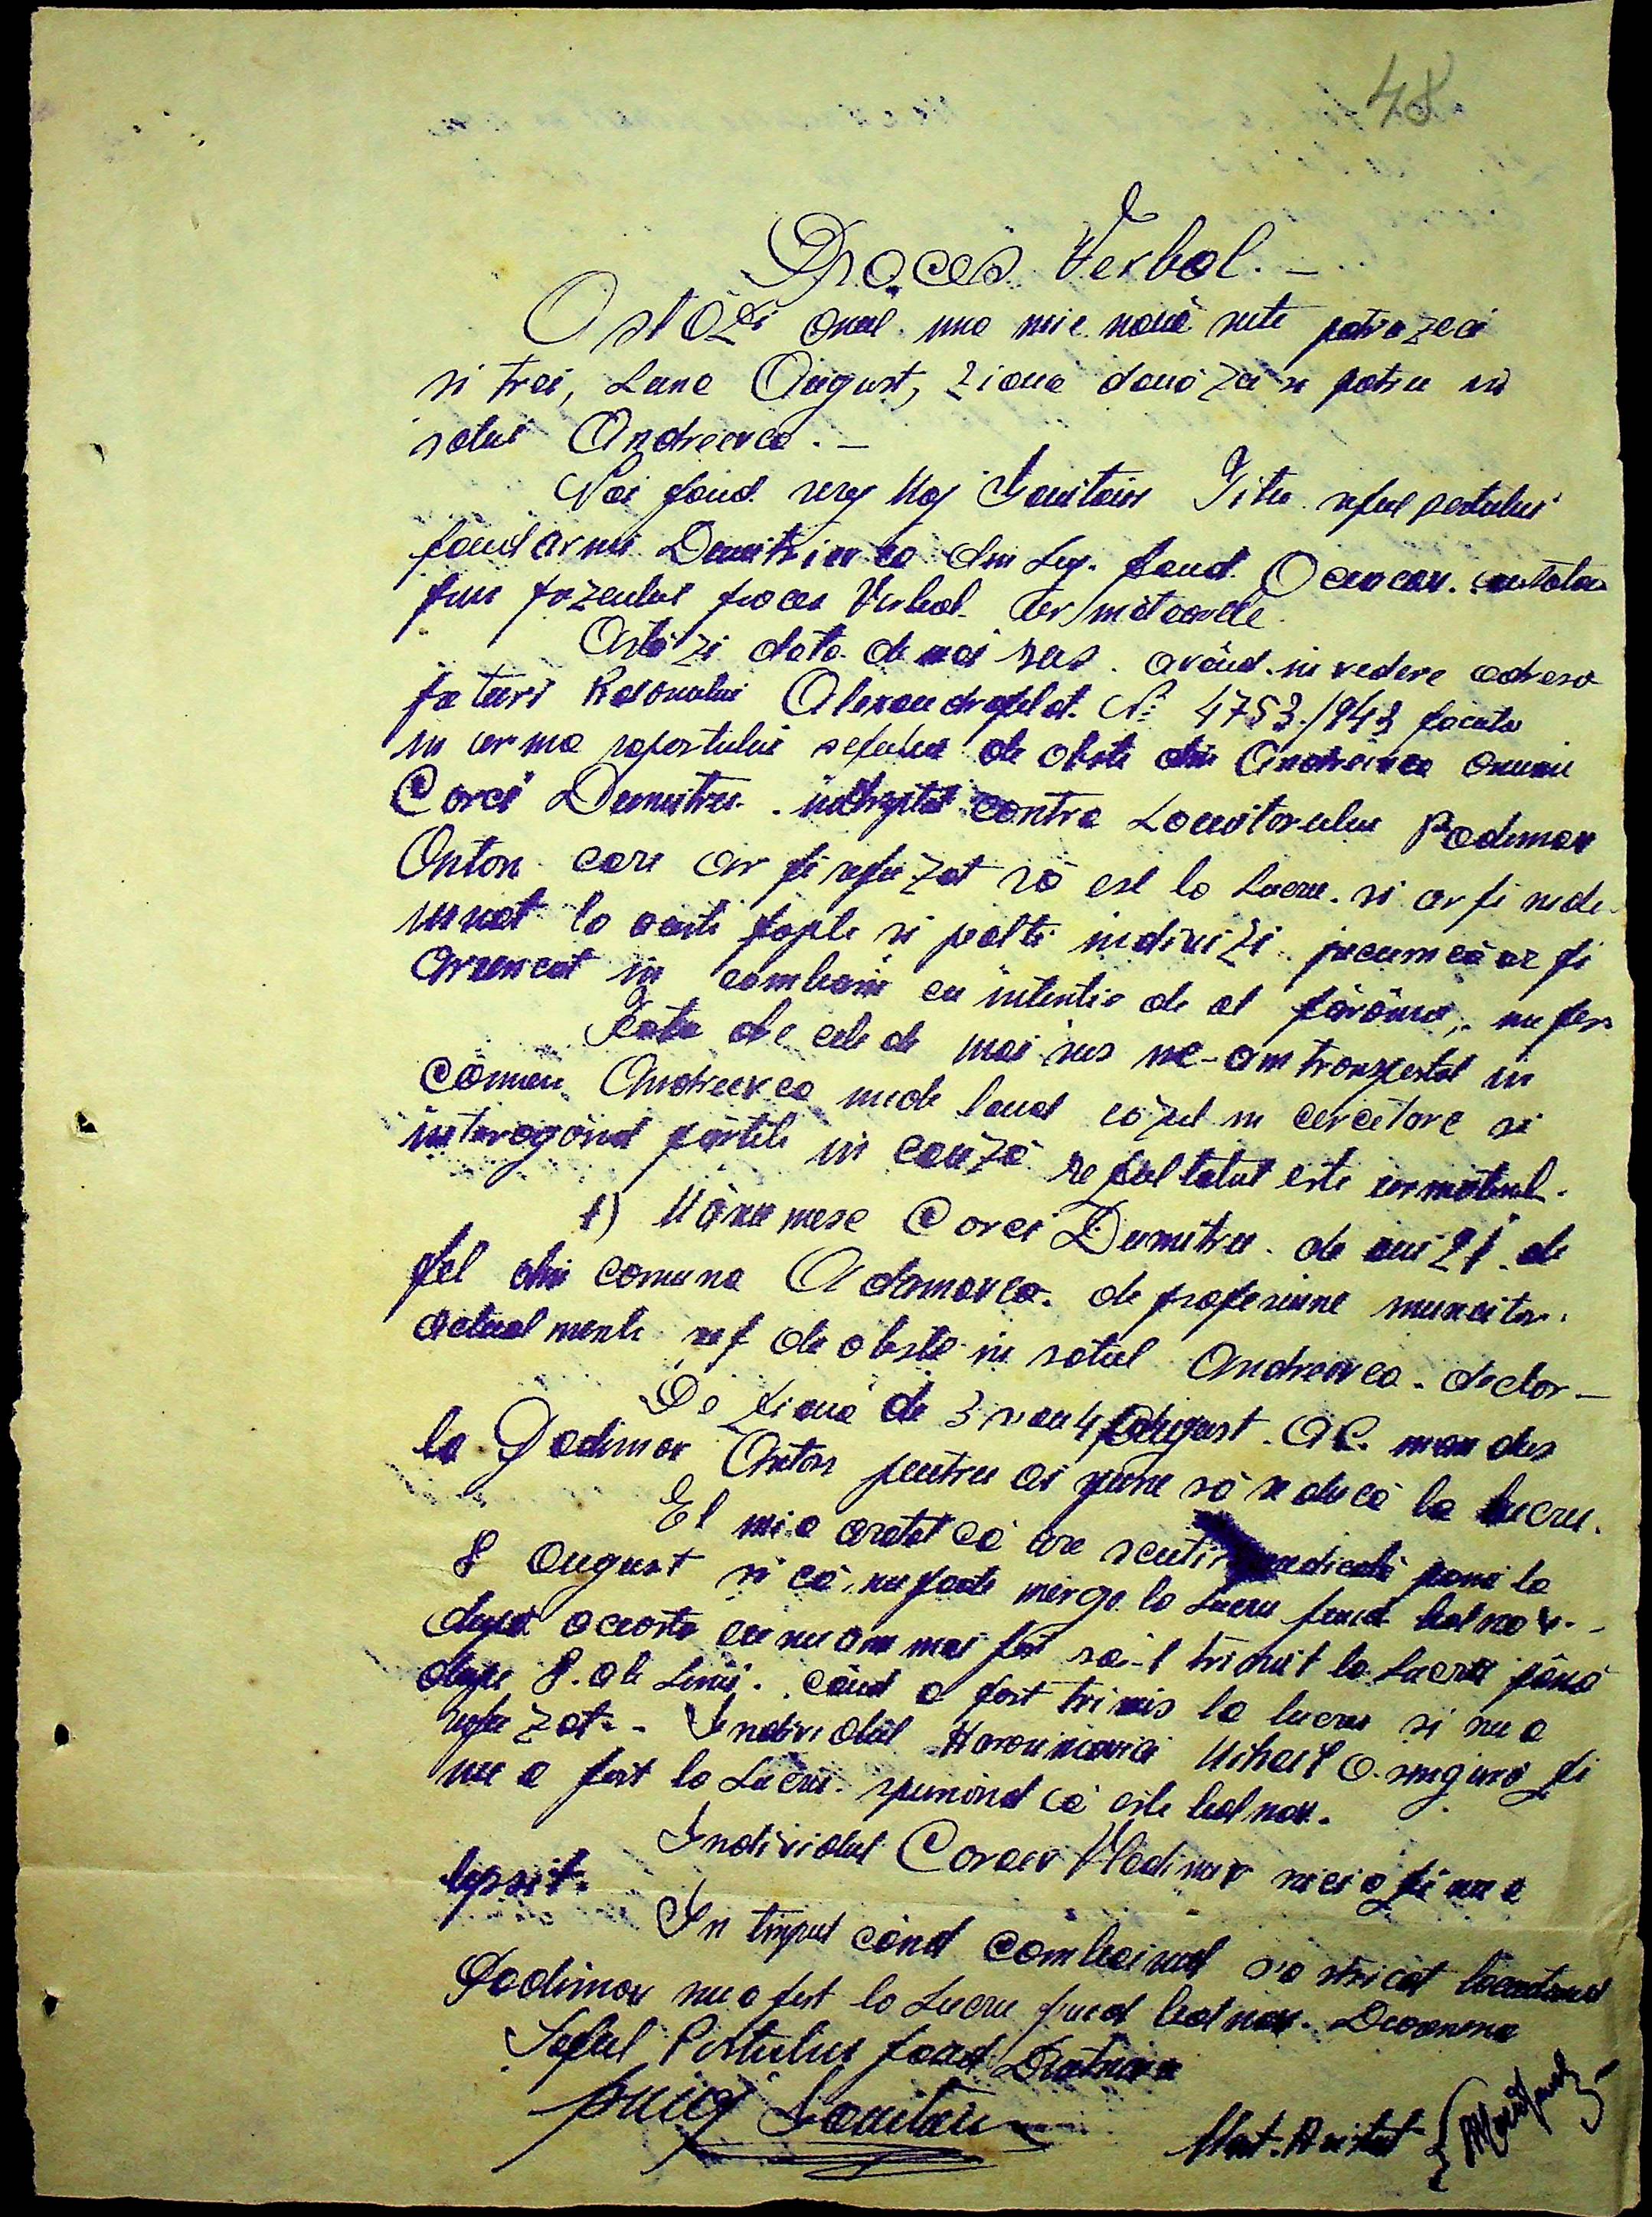 48
Proces Verbal. –
Astăzi anul una mie nouă sute patruzeci
si trei, Luna August, ziua douăzeci si patru in
satul Andreevca. –
Noi jand. serg Maj Titu seful postului
jandarmi Dumitrievca din Leg. Jand. Oceacov.
prin prezentul proces Verbal urmatoarele.
Astăzi data de mai sus. având in vedere adresa
Raionului Alexandrofeld. No 4753./943 facuta
in urma raportului sefului de obste din Andreevca anume
Corci Dumitru. indreptat contra Locuitorului Padimov
Anton care ar fi refuzat să ese la Lucru. si ar fi inde
mnat la aceste fapte si pe alti indivizi. precum că ar fi
aruncat in combaine cu intentia de al fărâma, un fer
Fata de cele de mai sus ne-am transportat in
Comuna Andreevca unde luand căzul in cercetare si
interogând părtile in cauză rezultatul este urmatorul.
1) Mă numesc Corci Dumitru. de ani 21. de
fel din comuna Adamovca. de profesiune muncitor.
actualmente sef de obste in satul Andreevca. declar –
Pe ziua de 3 sau 4 August. A.C. mam dus
la Padimov Anton pentru ai spune să se ducă la lucru.
El mi-a aratat că are scutire medicală pană la
8 August si că, nu poate merge la Lucru fiind bolnav. –
după aceasta eu nu am mai fost să-l trimit la Lucru până
dupe 8. ale Lunii. când a fost trimis la lucru si nu a
refuzat. – Individul Mihail o singură zi
nu a fost la Lucru. spunând că este bolnav.
Individul Coraev Vladimir nici o zi nu a
lipsit.
In timpul când combainul s'a stricat locuitorul
Padimov nu a fost la Lucru fiind bolnav.
Seful Postului Jand
Mart. Asistent